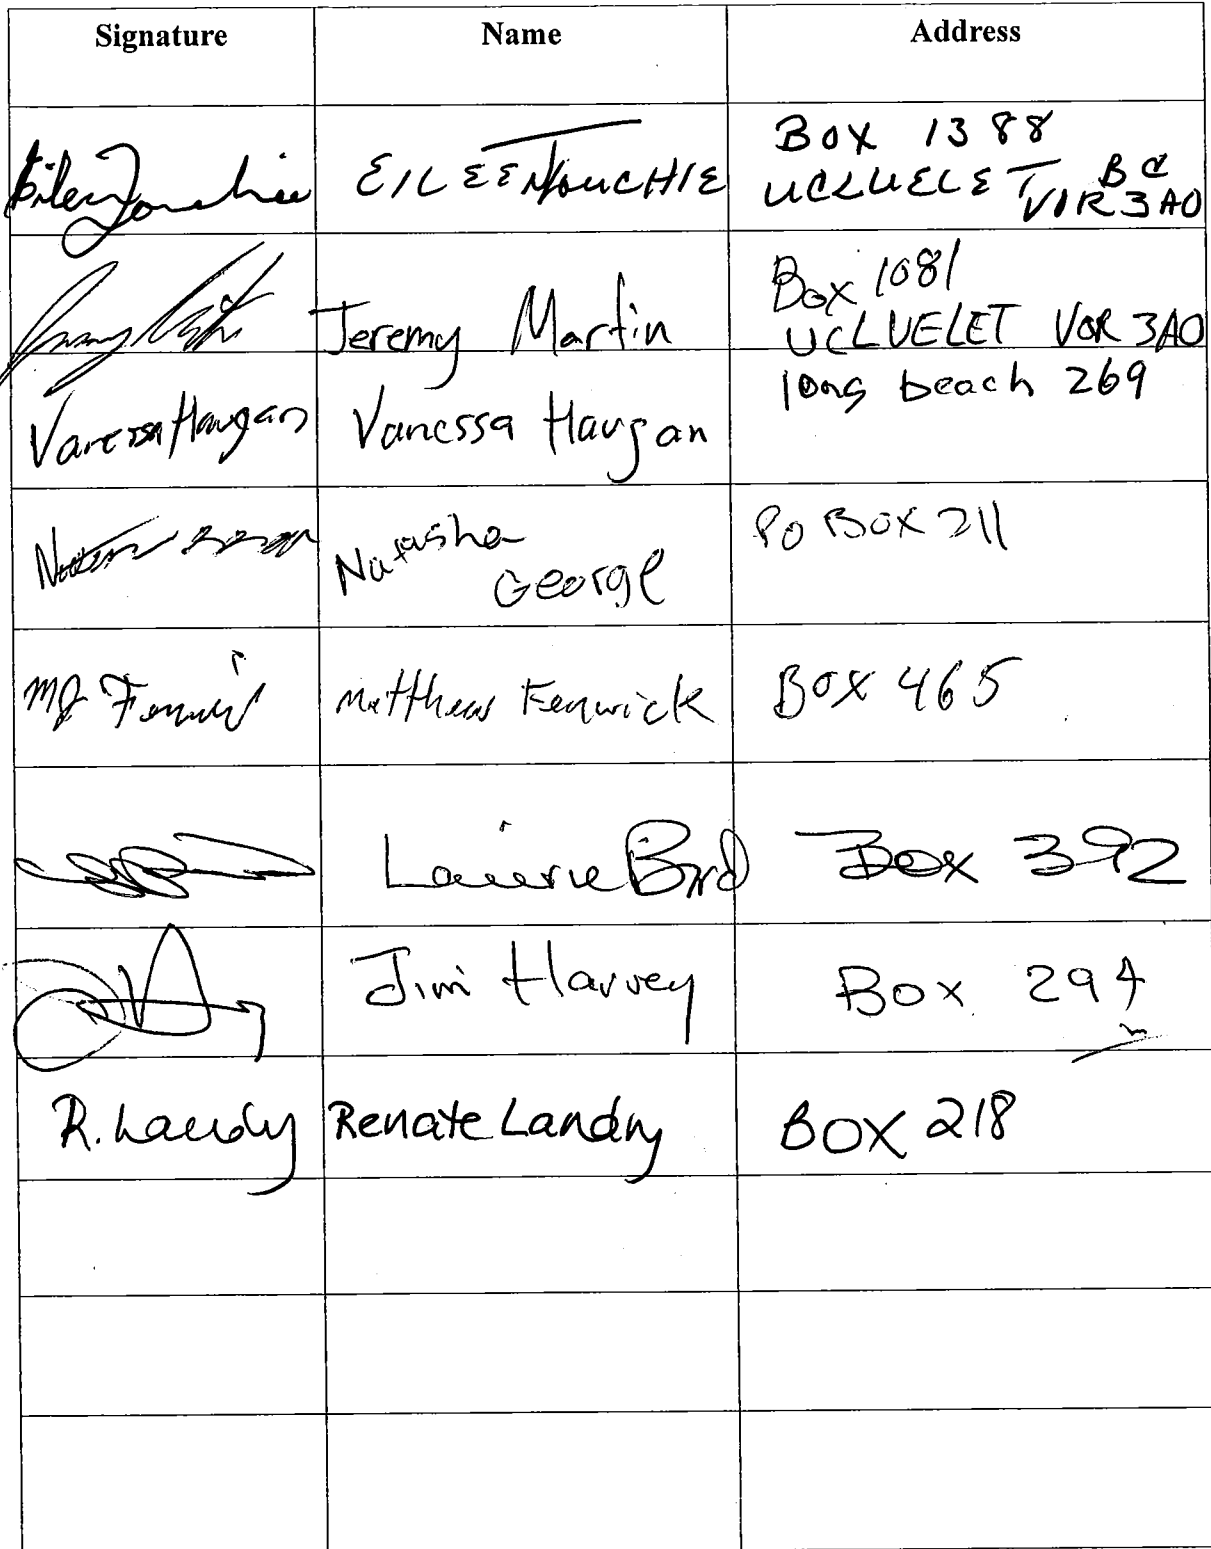 Signature Name Address
Eileen Touchie EILEEN TOUCHIE BOX 1388
UCLUELET BC
V0R 3A0
Jeremy Martin Box 1081
UCLUELET V0R 3A0
Vanessa Haugan Vanessa Haugan long beach 269
Natasha
George PO BOX 211
MJ Matthew Fenwick BOX 465
Laurie Bird Box 392
Jim Harvey Box 294
R. Landry Renate Landry BOX 218